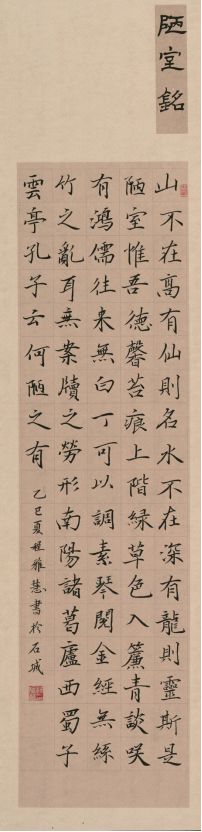 陋室銘
山不在高有仙則名水不在深有龍則靈斯是
陋室惟吾德馨苔痕上階緑草色入簾青談咲
有鴻儒往来無白丁可以調素琴閲金經無絲
竹之亂耳無案牘之勞形南陽諸葛廬西蜀子
雲亭孔子云何陋之有
乙巳夏程雅慧書於石城